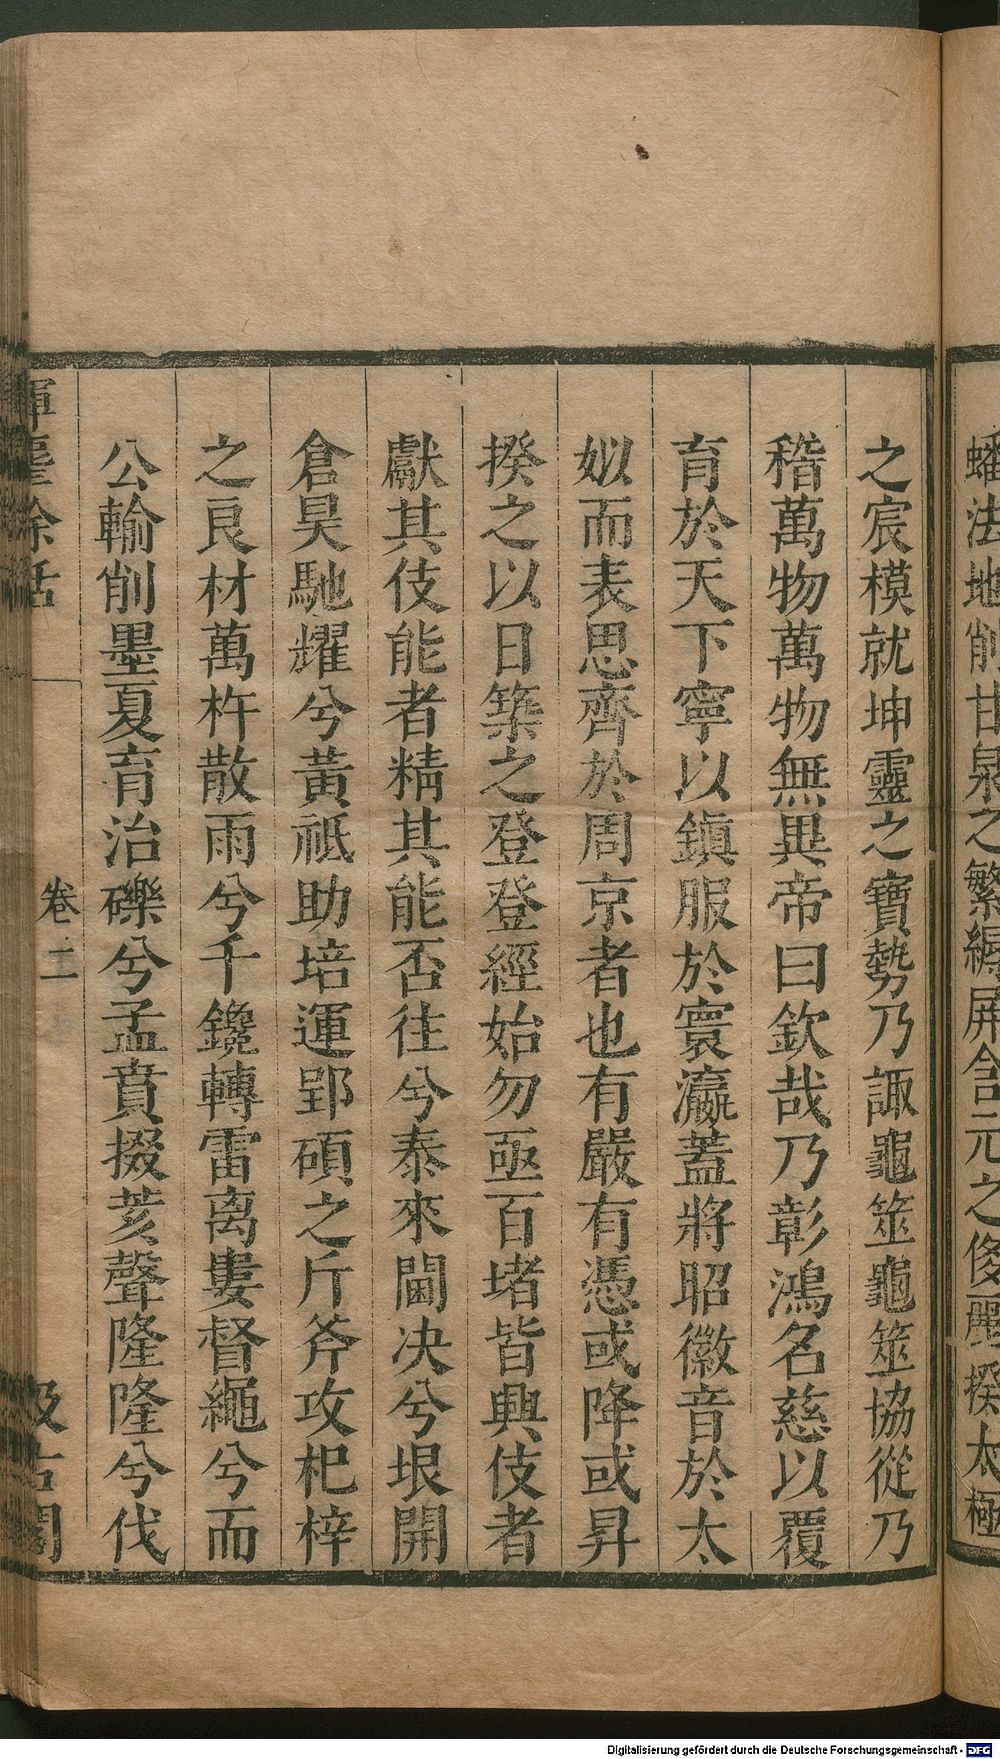 蟠法地削甘泉之繁縟屏含元之侈麗揆太極
之宸模就坤靈之寶勢乃諏龜筮龜筮協從乃
稽萬物萬物無異帝曰欽哉乃彰鴻名慈以覆
育於天下寧以鎮服於寰瀛蓋將昭徽音於太
姒而表思齊於周京者也有嚴有憑或降或昇
揆之以日築之登登經始勿亟百堵皆興伎者
獻其伎能者精其能否往兮泰來閫決兮垠開
倉昊馳耀兮黃祗助培運郢碩之斤斧攻杞梓
之良材萬杵散雨兮千鑱轉雷离婁督繩兮而
公輸削墨夏育治礫兮孟賁掇荄聲隆隆兮伐
揮麈餘話
卷二
汲古閣
Digitalisierung gefördert durch die Deutsche Forschungsgemeinschaft - DFG